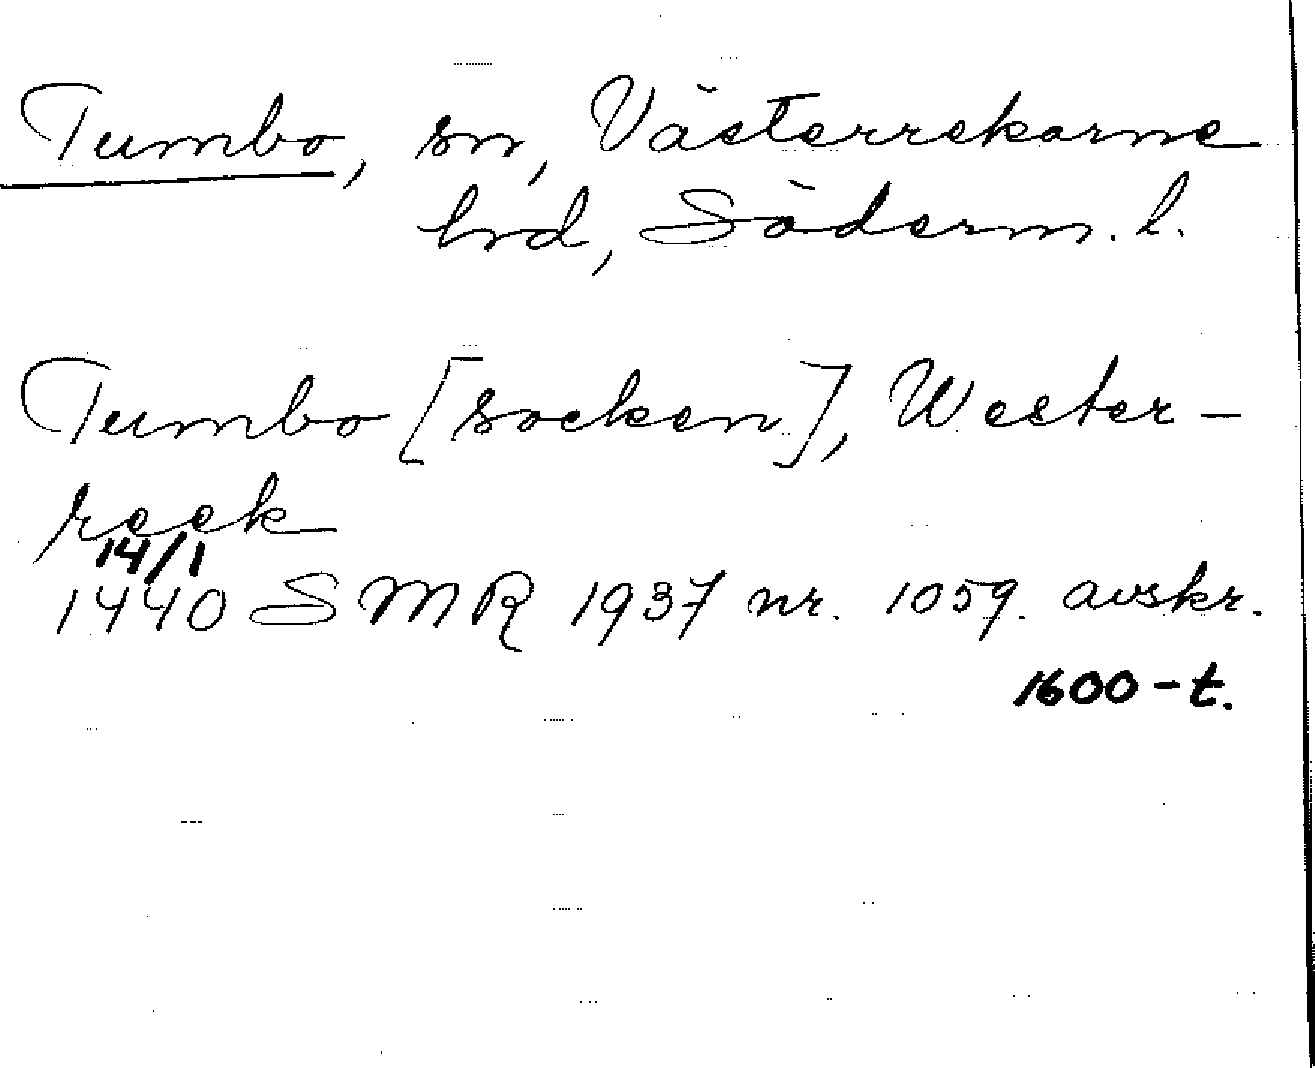 Tumbo, sn, Västerrekarne
hrd, Söderm. l.
Tumbo [socken], Wester-
reek
14/1
1440 SMR 1937 nr. 1059. avskr.
1600-t.